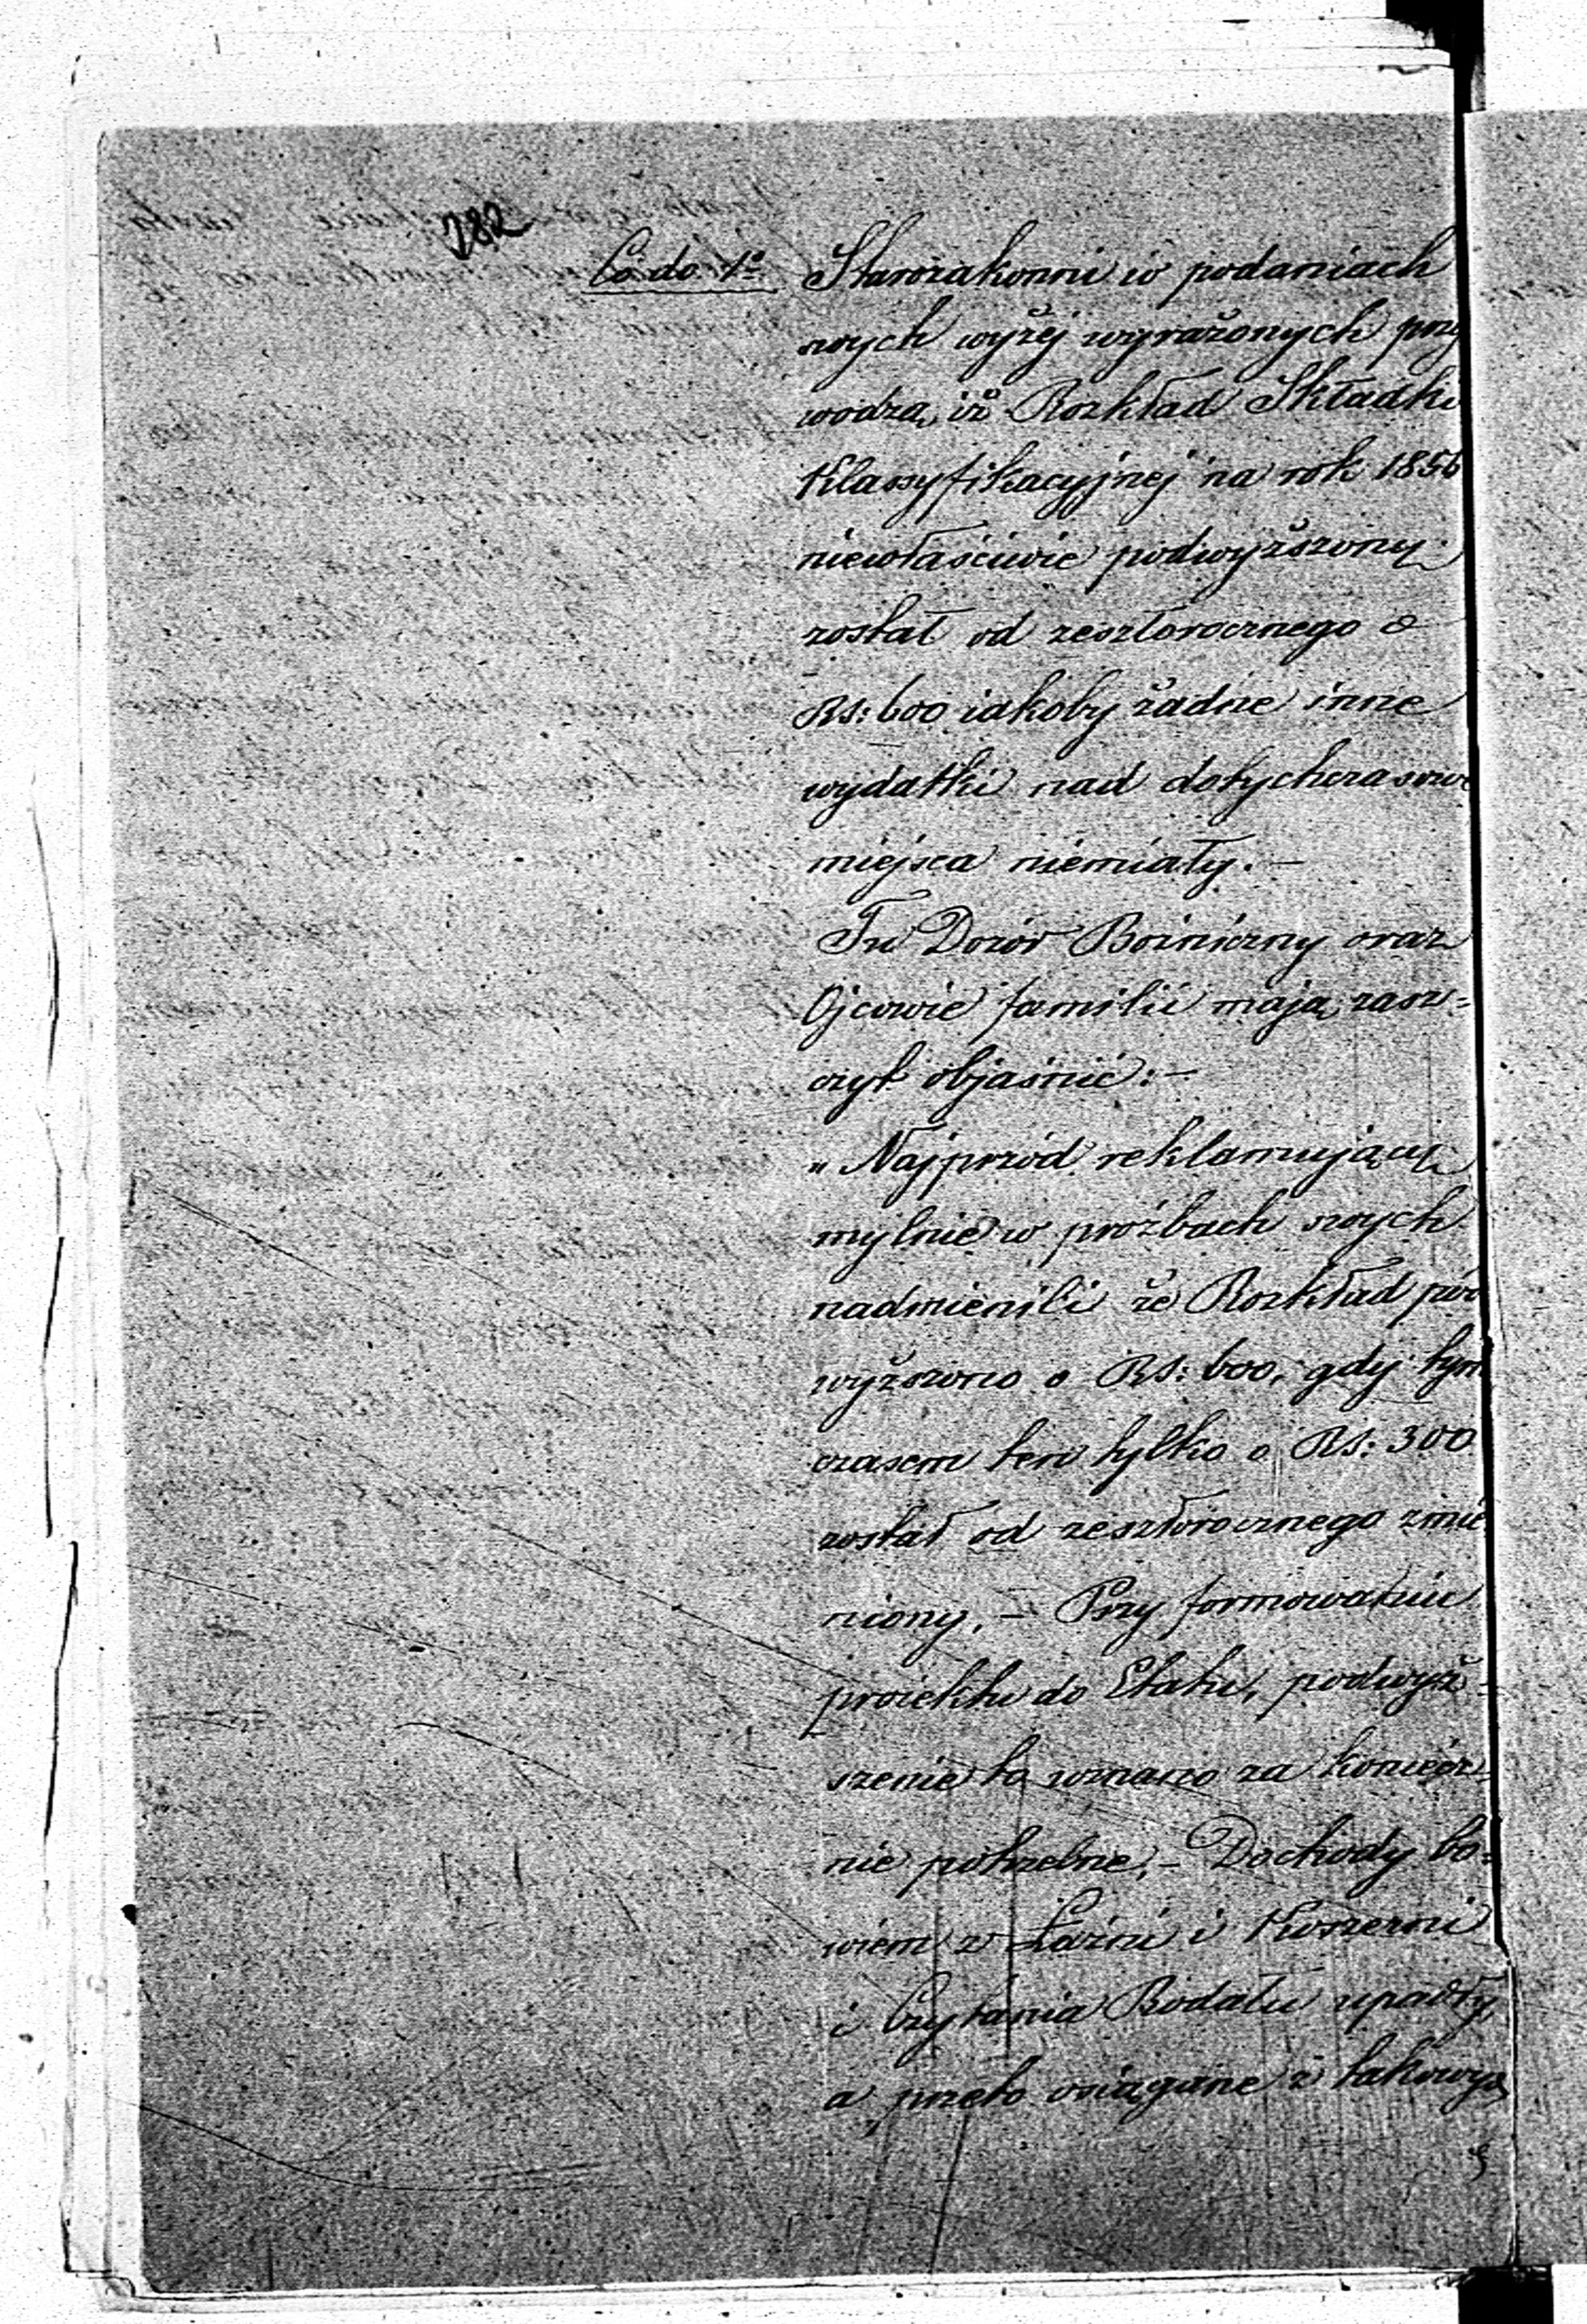 182
Co do 1º
Starozakonni w podaniach
swych wyżej wyrażonych przy
wodzą, iż Rozkład Składki
Klassyfikacyjnej na rok 1856
niewłaściwie podwyższony
został od zeszłorocznego o
Rs: 600 iakoby żadne inne
wydatki nad dotychczasowe
miejsca niemiały. —
Tu Dozór Bożniczny oraz
Ojcowie familii mają zasz=
czyt objaśnić: —
„ Najprzód reklamujący
mylnie w proźbach swych
nadmienili że Rozkład pod
wyższono o Rs: 600, gdy tym
czasem ten tylko o Rs: 300
został od zeszłorocznego zmie
niony. — Przy formowaniu
proiektu do Etatu, podwyż=
szenie to uznano za koniecz=
nie potrzebne, — Dochody bo=
wiem z Łaźni i Koszerni
i Czytania Rodału upadły,
a przeto osiągane z takowych